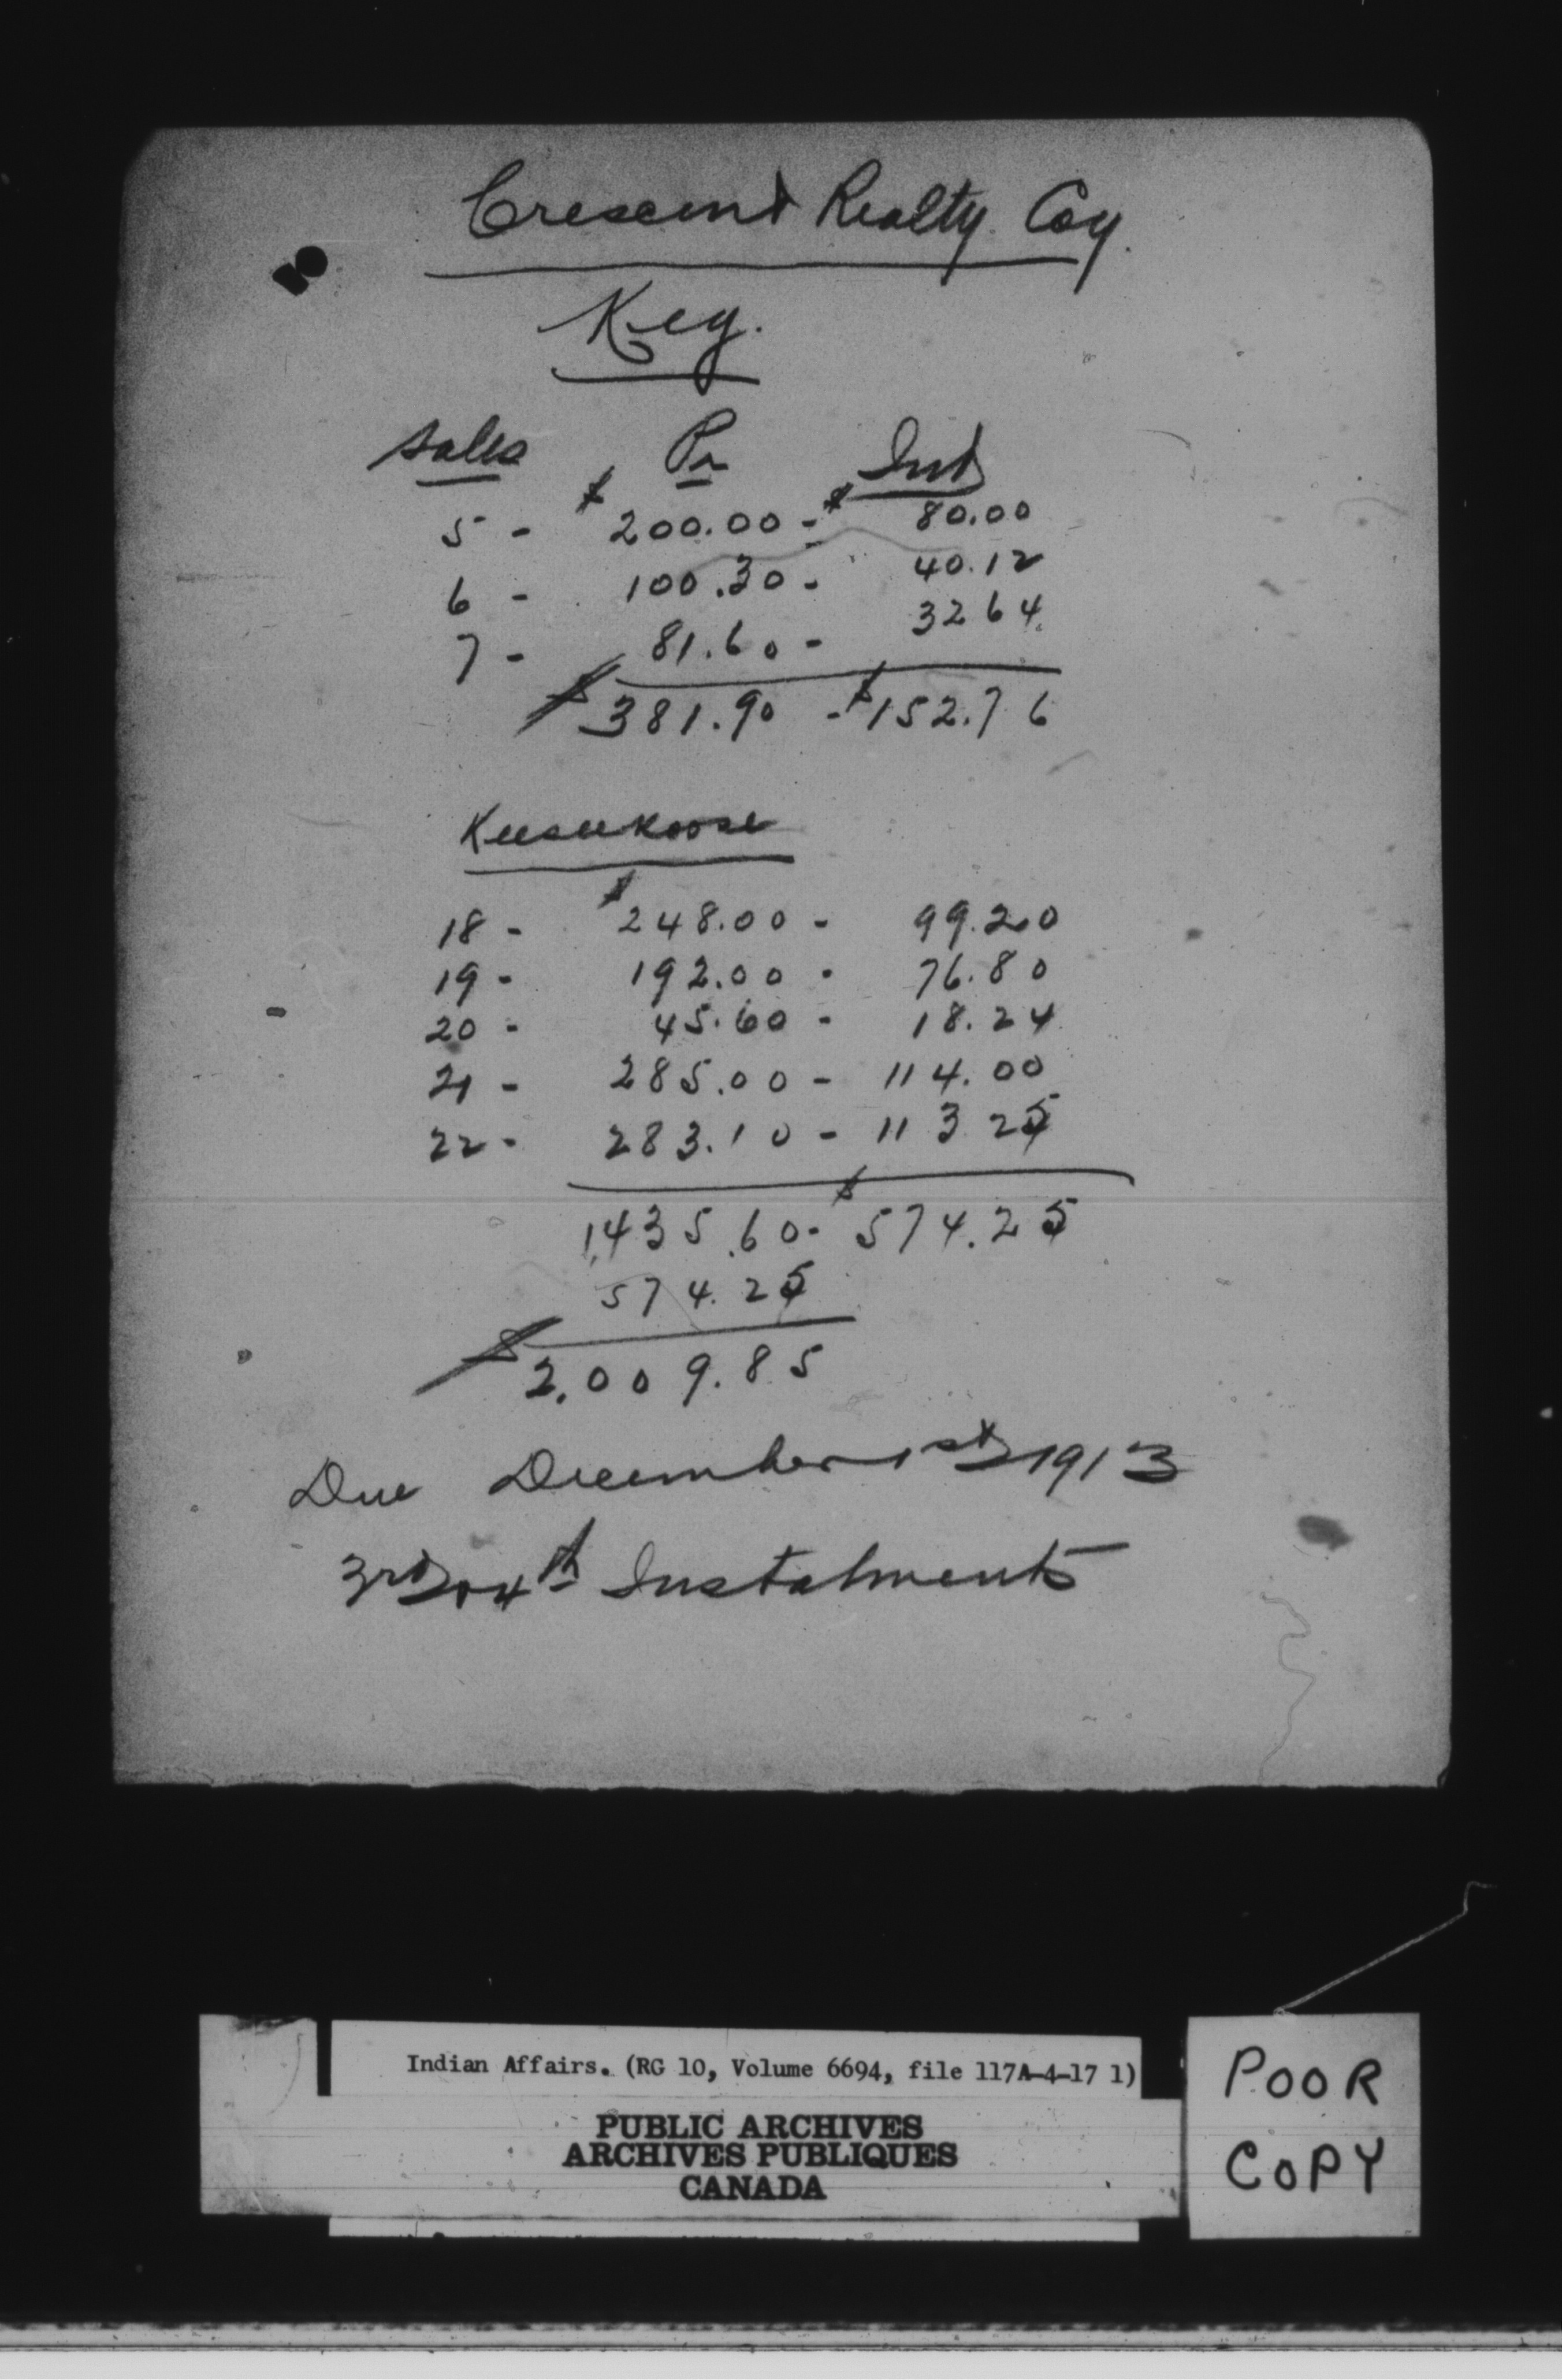 Crescent Realty Coy.
Key.
Sales Pr Int
5 - $200.00 - $80.00
6 - 100.30 - 40.12
7 - 81.60 - 32 64
$381.90 - $152.76
Keeseekoose
18 - $248.00 - 99.20
19 - 192.00 - 76.80
20 - 45.60 - 18.24
21 - 285.00 - 114.00
22 - 283.10 - 113 25
1,435.60 - $574.25
574.25
$2,009.85
Due December 1st 1913
3rd & 4th Instalments
Indian Affairs. (RG 10, Volume 6694, file 117A-4-17 1)
PUBLIC ARCHIVES
ARCHIVES PUBLIQUES
CANADA
POOR
COPY